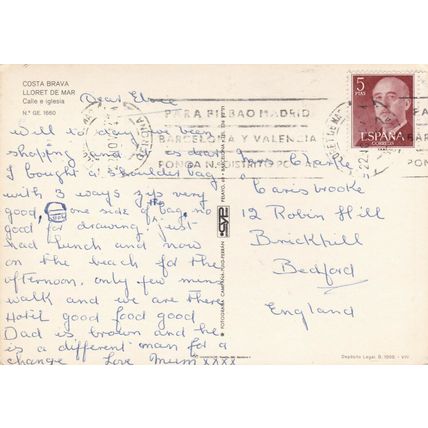 COSTA BRAVA
LLORET DE MAR
Calle e iglesia
N.º GE. 1660
Dear Elsie
Well to day we been
shopping and is dear
I bought a shoulder bag
with 3 ways zip very
good, one side of the bag no
good for drawing just
had lunch and now
on the beach for the
afternoon, only few mins
walk and we are there
Hotel good food good
Dad is brown and he
is a different man for a
change Love Mum xxxx
PARA BILBAO MADRID
BARCELONA Y VALENCIA
PONGA N.º DISTRITO POSTAL
5
PTAS
ESPAÑA
CORREOS
Mrs Clarke
Carisbrooke
12 Robin Hill
Brickhill
Bedford
England
FOTOGRAFIA CAMPAÑA PUIG-FERRAN
Depósito Legal B.